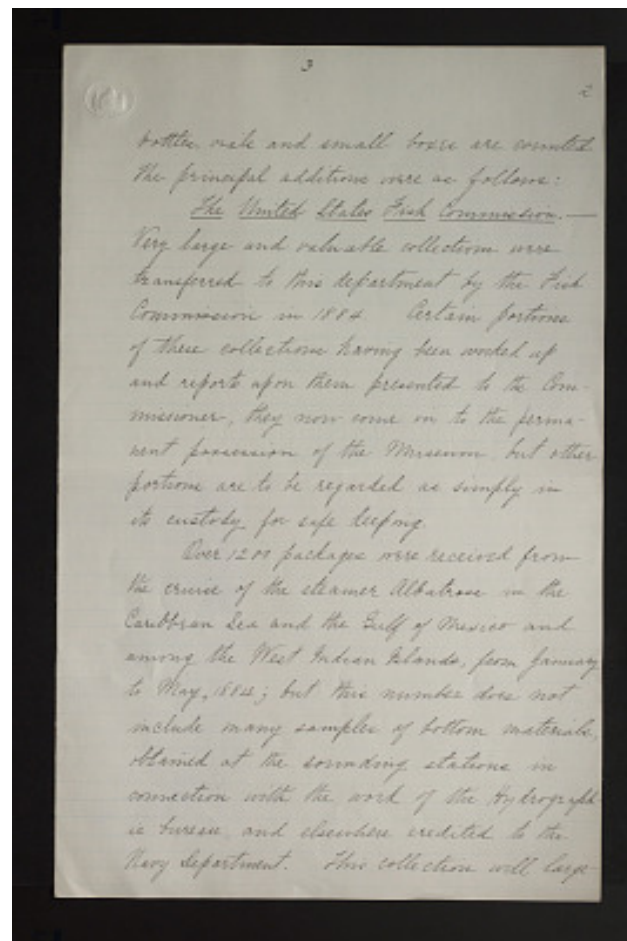 3
2
bottles, vials and small boxes are counted
The principal additions were as follows:
The United States Fish Commission.—
Very large and valuable collections were
transferred to this department by the Fish
Commission in 1884 Certain portions
of these collections having been worked up
and reports upon them presented to the Com-
missioner, they now come in to the perma-
nent possession of the Museum, but other
portions are to be regarded as simply in
its custody for safe keeping.
Over 1200 packages were received from
the cruise of the steamer Albatross in the
Caribbean Sea and the Gulf of Mexico and
among the West Indian Islands, from January
to May, 1884; but this number does not
include many samples of bottom materials,
obtained at the sounding stations in
connection with the work of the Hydrograph
ic bureau, and elsewhere credited to the
Navy Department. This collection will large